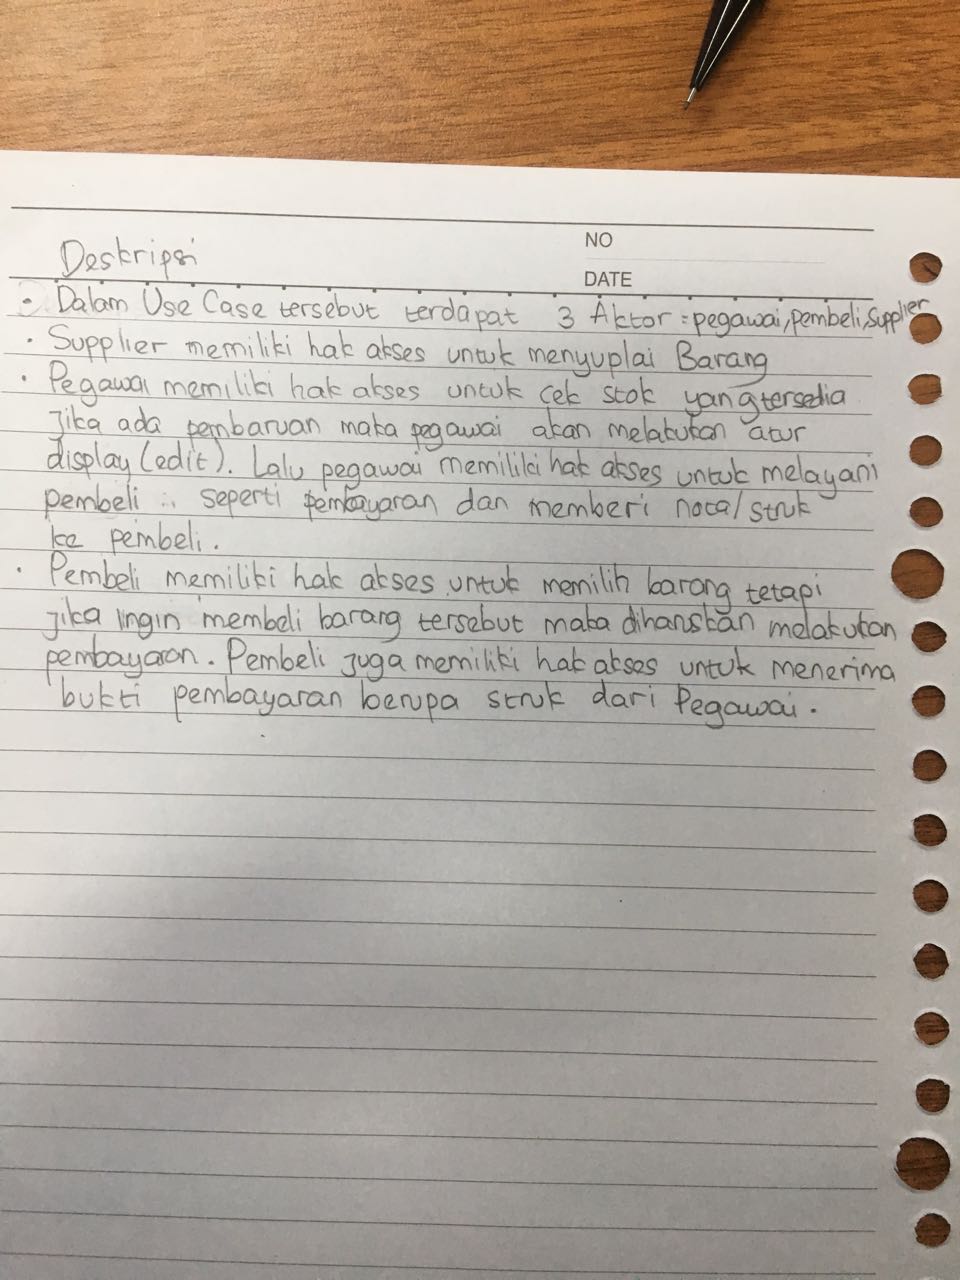 NO
Deskripsi
DATE
• Dalam Use Case tersebut terdapat 3 Aktor : pegawai, pembeli, Supplier
• Supplier memiliki hak akses untuk menyuplai Barang
• Pegawai memiliki hak akses untuk cek stok yang tersedia
jika ada pembaruan maka pegawai akan melakukan atur
display (edit). Lalu pegawai memiliki hak akses untuk melayani
pembeli seperti pembayaran dan memberi nota/struk
ke pembeli.
• Pembeli memiliki hak akses untuk memilih barang tetapi
jika iingin membeli barang tersebut maka dihanskan melakukan
pembayaran. Pembeli juga memiliki hak akses untuk menerima
bukti pembayaran berupa struk dari Pegawai.